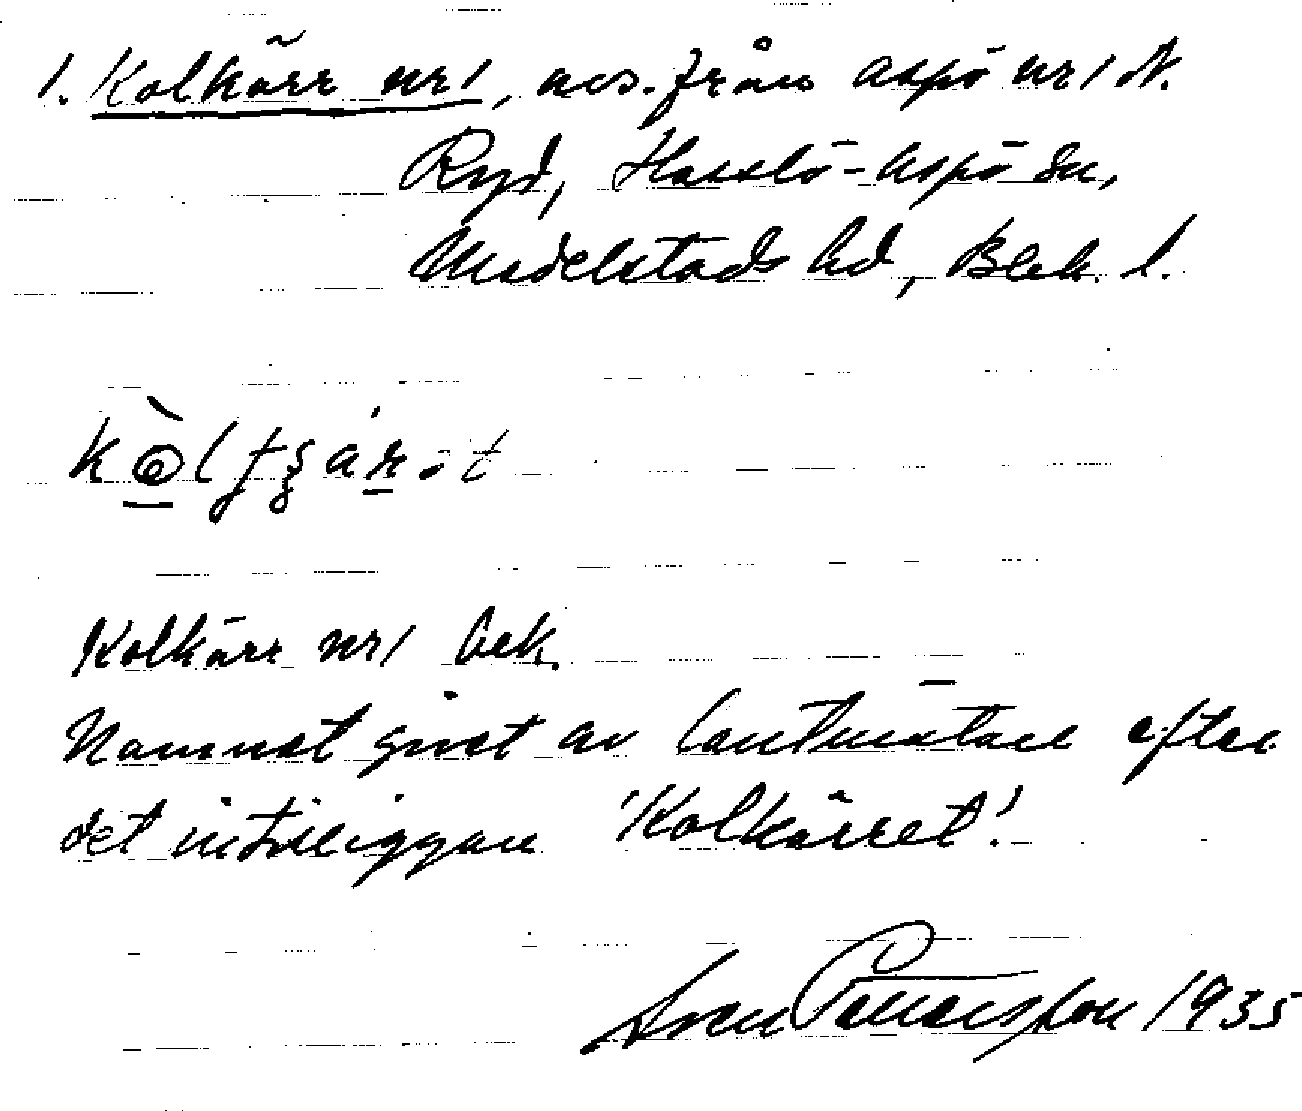 1. Kolkärr nr 1, avs. från Aspö nr 1 N.
Ryd, Hasslö-Aspö sn,
Medelstads hd, Blek. l.
Kolkärr nr 1 bek.
Namnet givet av lantmätare efter
det intilliggan 'Kolkärret'.
Sven Pettersson 1935